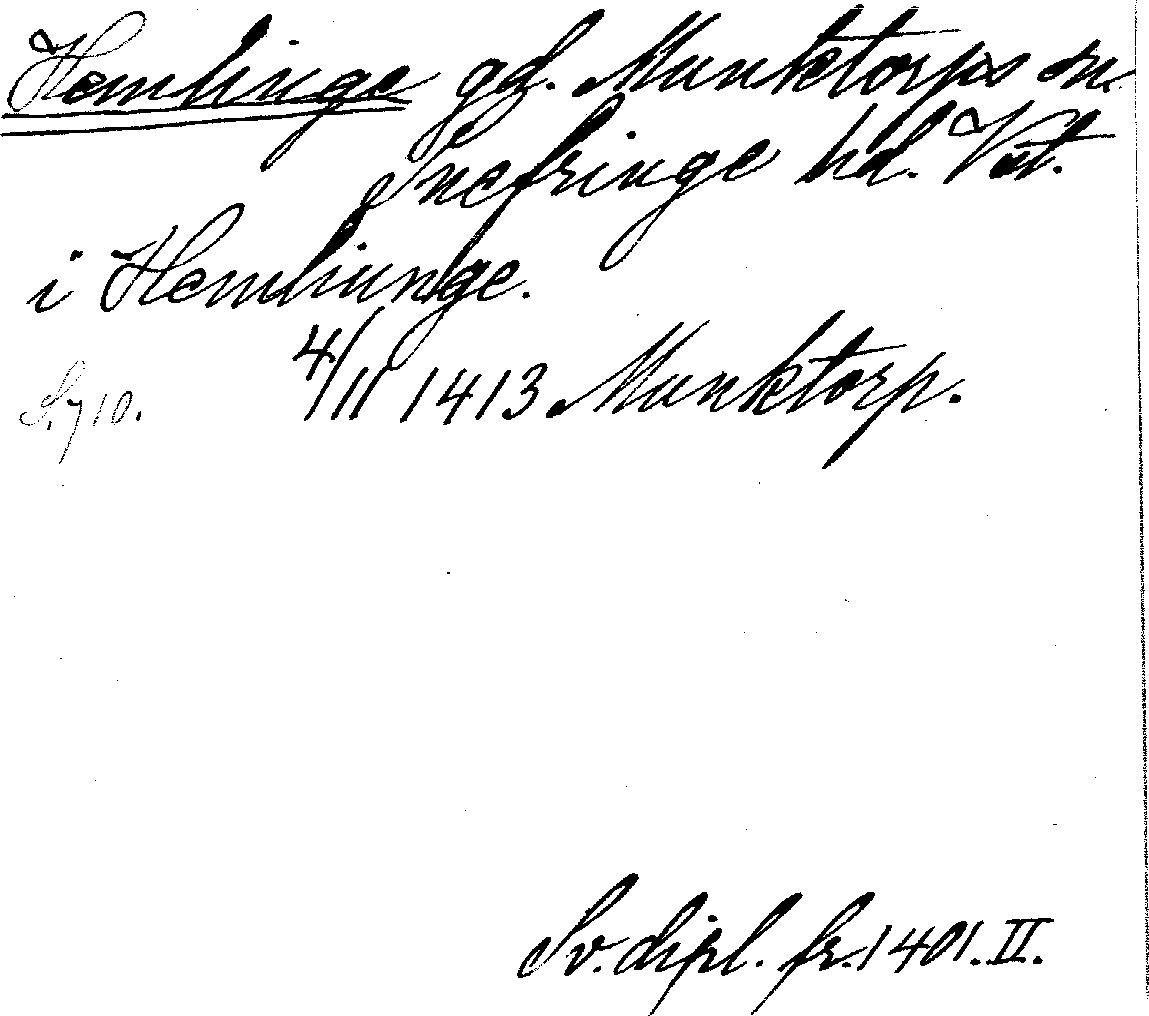 Hemlinge gd. Munktorps sn
Snefringe hd. Vstl.
i Hemliunge.
4/11 1413 Munktorp.
S. 710.
Sv. dipl. fr. 1401. II.